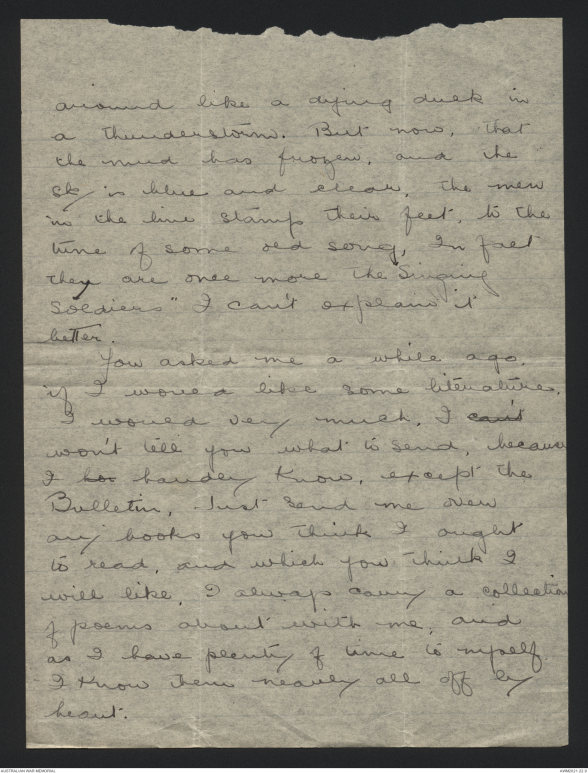 around like a dying duck in
a thunderstorm. But now, that
the mud has frozen, and the
sky is blue and clear, the men
in the line stamp their feet, to the
tune of some old song, In fact
they are once more the "Singing
Soldiers" I can't explain it
better.
You asked me a while ago,
if I would like some literature,
I would very much, I can't
won't tell you what to send, because
I har hardly know, except the
Bulletin, Just send me over
any books you think I ought
to read, and which you think I
will like, I always carry a collection
of poems about with me, and
as I have plenty of time to myself
I know them nearly all off by
heart.
AUSTRALIAN WAR MEMORIAL